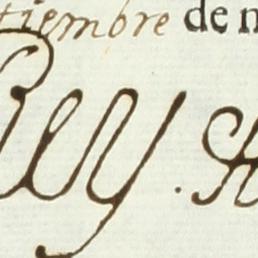 tiembre de m
Rey.